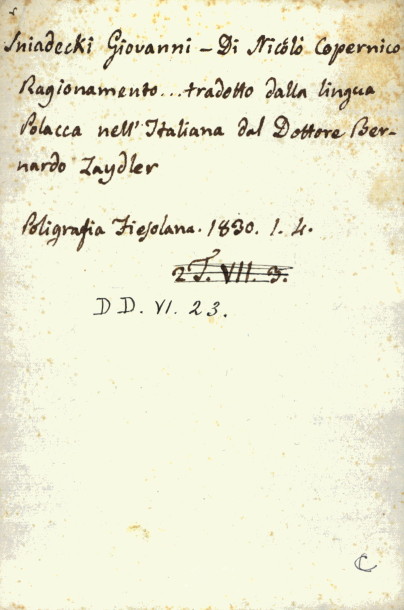 Sniadecki Giovanni – Di Nicolò Copernico
Ragionamento... tradotto dalla lingua
Polacca nell'Italiana dal Dottore Ber-
nardo Zaydler
Poligrafia Fiesolana. 1830. 1. 4.
2 F. VII. 9.
DD. VI. 23.
C